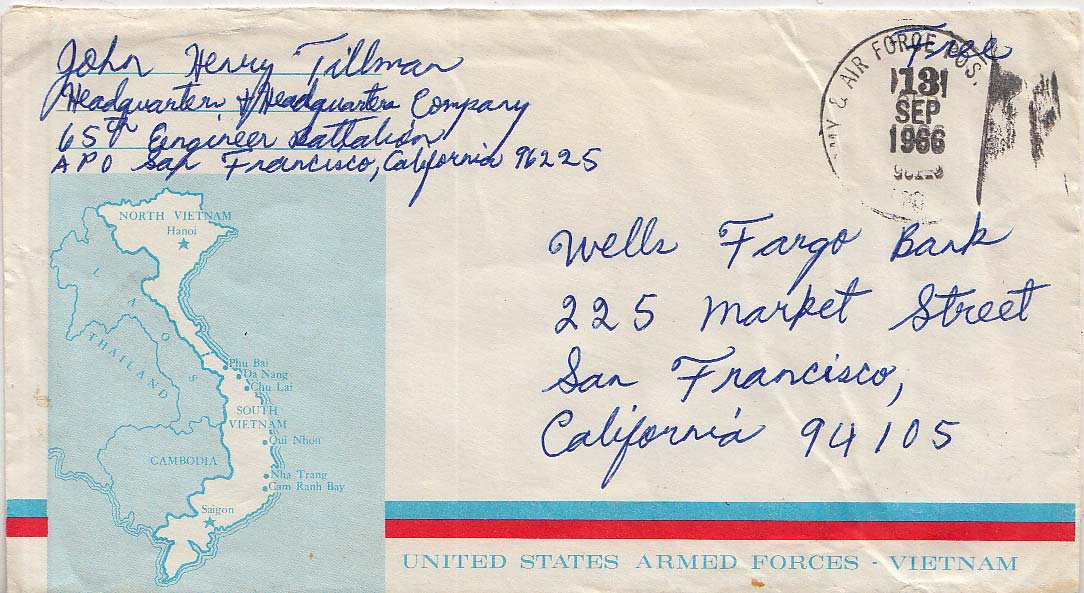 John Henry Tillman
Headquarters & Headquarters Company
65th Engineer Battalion
APO San Francisco, California 96225
Free
ARMY & AIR FORCE POS.
13
SEP
1966
Wells Fargo Bank
225 Market Street
San Francisco,
California 94105
NORTH VIETNAM
Hanoi
LAOS
THAILAND
Phu Bai
Da Nang
Chu Lai
SOUTH
VIETNAM
Qui Nhon
CAMBODIA
Nha Trang
Cam Ranh Bay
Saigon
UNITED STATES ARMED FORCES - VIETNAM